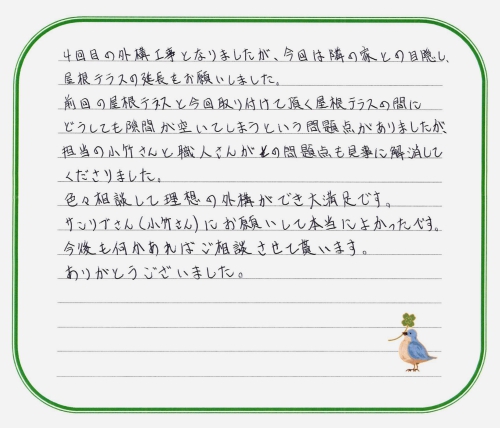 4回目の外構工事となりましたが、今回は隣の家との目隠し、
屋根テラスの延長をお願いしました。
前回の屋根テラスと今回取り付けて頂く屋根テラスの間に
どうしても隙間が空いてしまうという問題点がありましたが、
担当の小竹さんと職人さんがその問題点も見事に解消して
くださりました。
色々相談して理想の外構ができ大満足です。
サンリアさん(小竹さん)にお願いして本当によかったです。
今後も何かあればご相談させて貰います。
ありがとうございました。